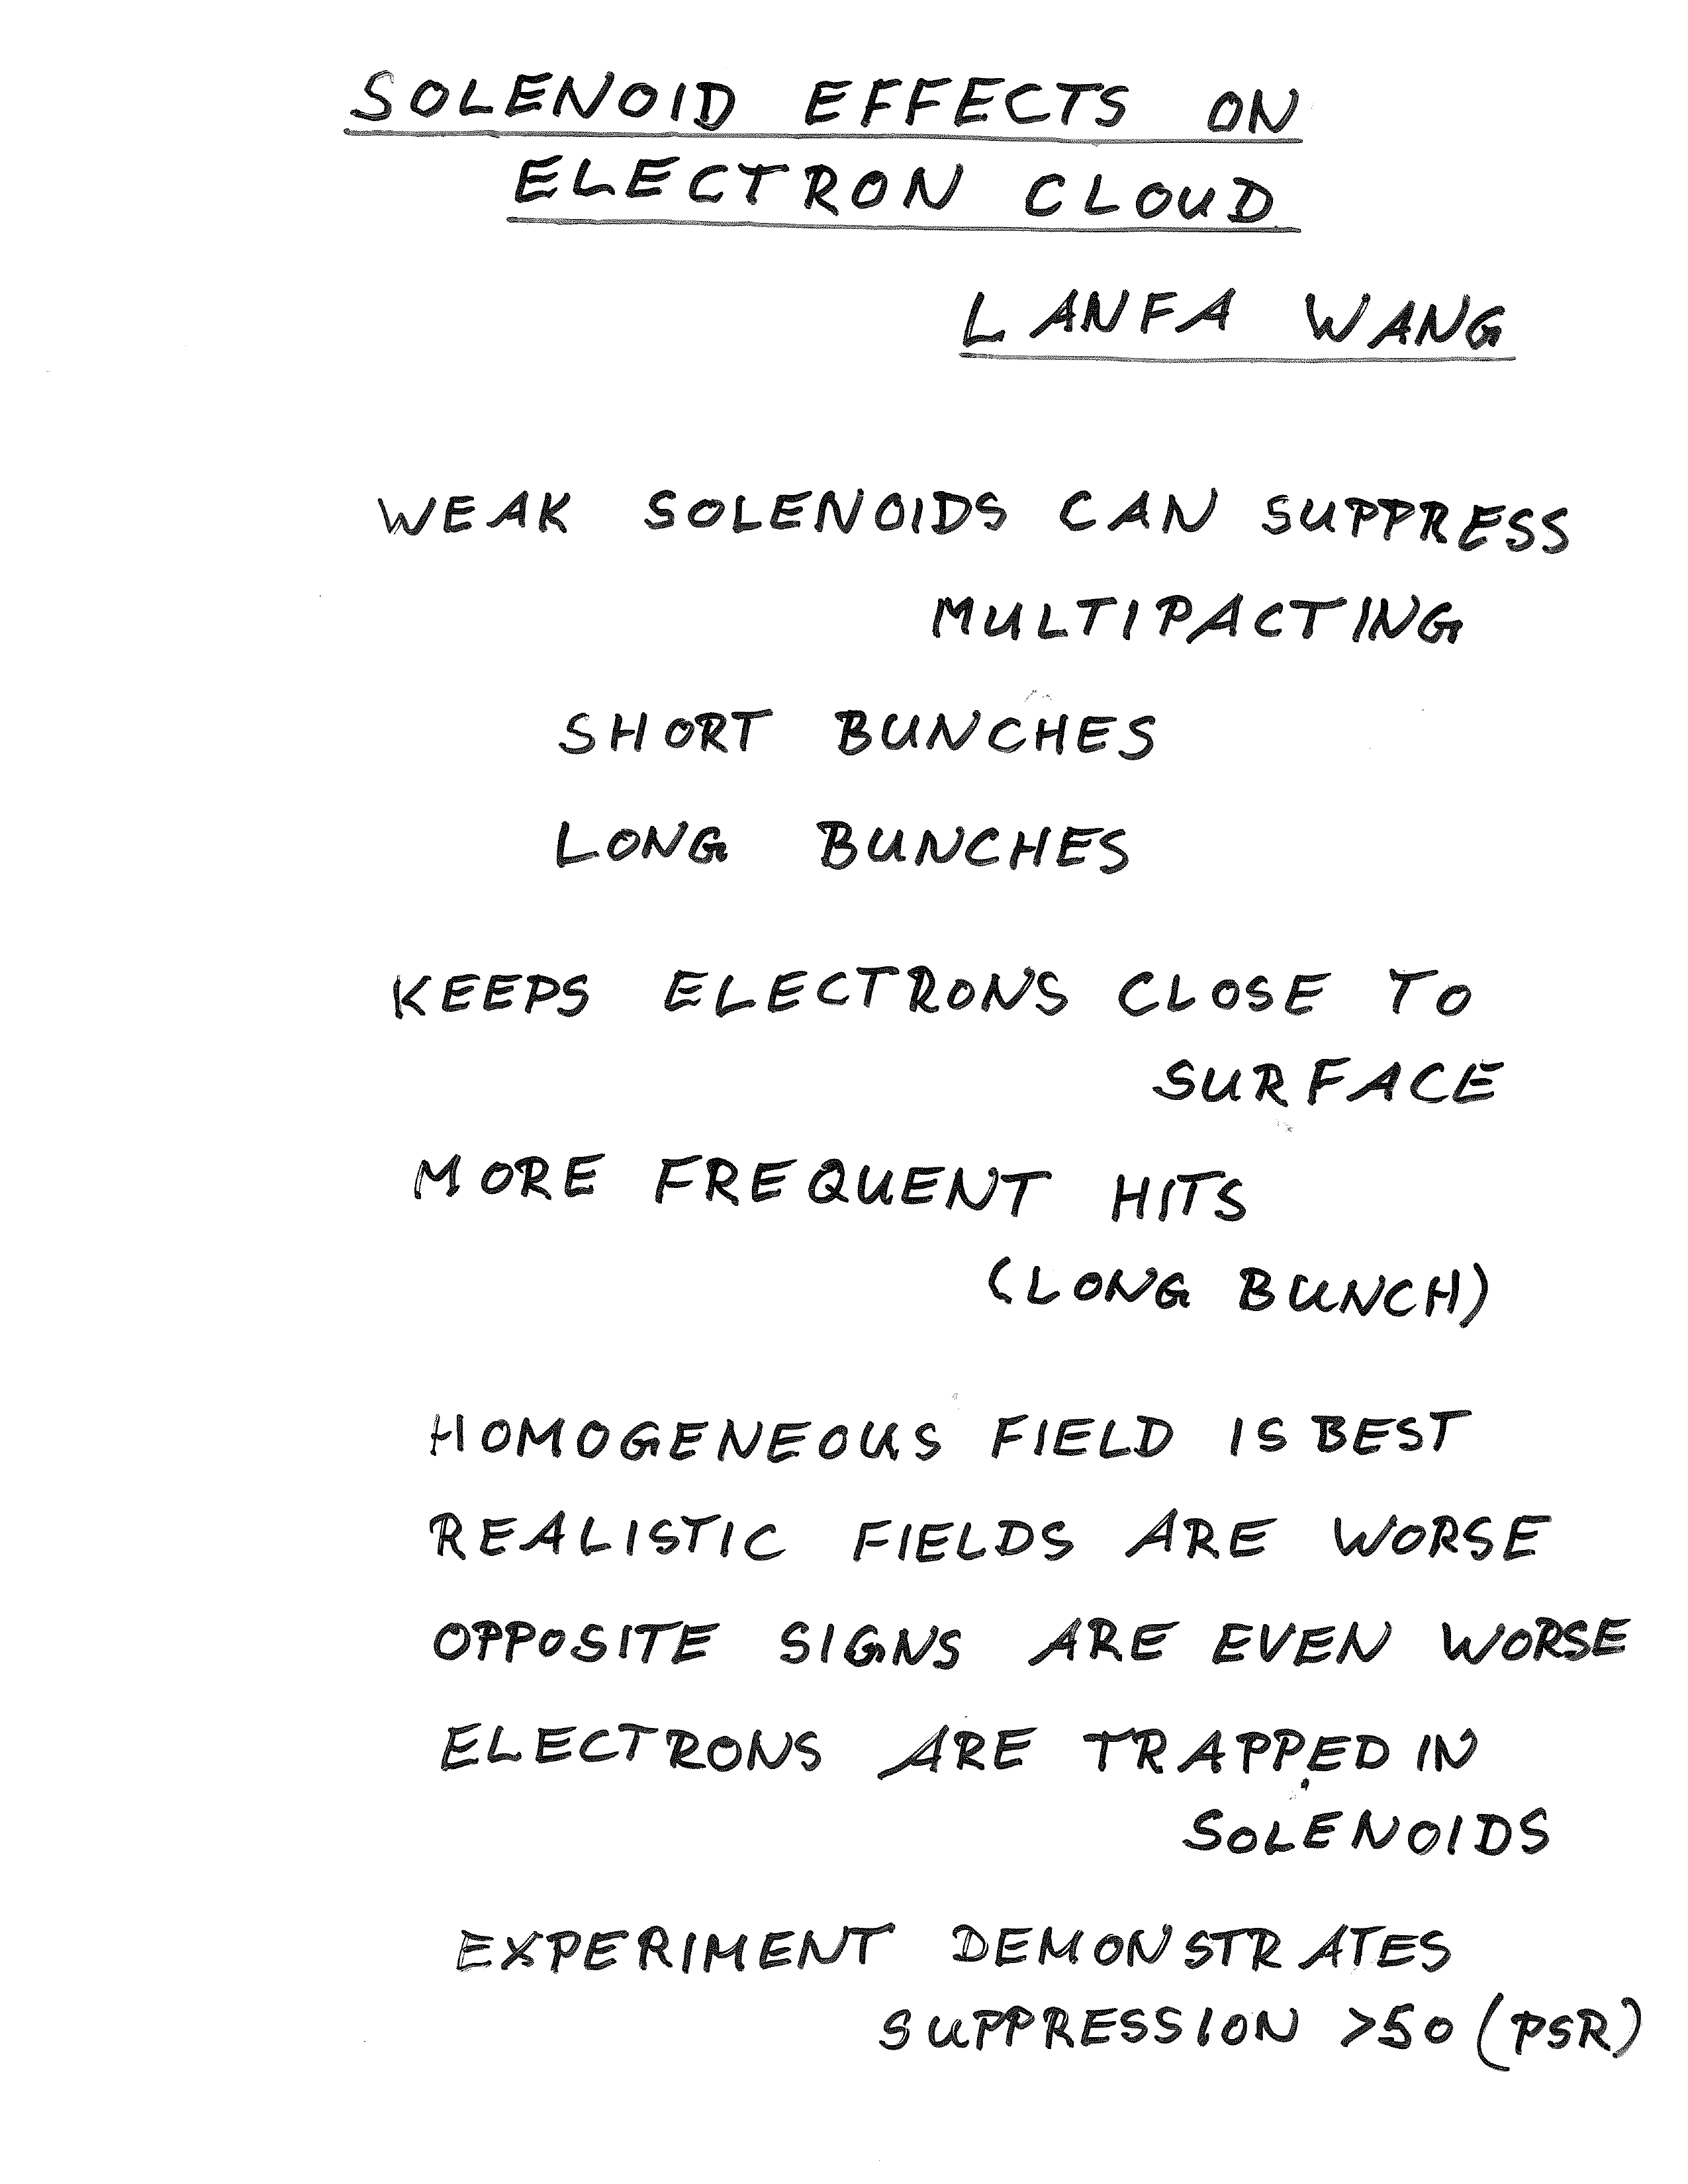 SOLENOID EFFECTS ON
ELECTRON CLOUD
LANFA WANG
WEAK SOLENOIDS CAN SUPPRESS
MULTIPACTING
SHORT BUNCHES
LONG BUNCHES
KEEPS ELECTRONS CLOSE TO
SURFACE
MORE FREQUENT HITS
(LONG BUNCH)
HOMOGENEOUS FIELD IS BEST
REALISTIC FIELDS ARE WORSE
OPPOSITE SIGNS ARE EVEN WORSE
ELECTRONS ARE TRAPPED IN
SOLENOIDS
EXPERIMENT DEMONSTRATES
SUPPRESSION >50 (PSR)